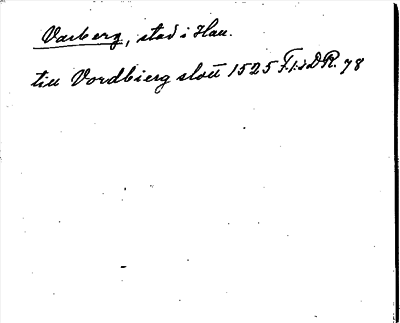 Varberg, stad i Hall.
till Vordbierg slott 1525 F.I:s D R. 78